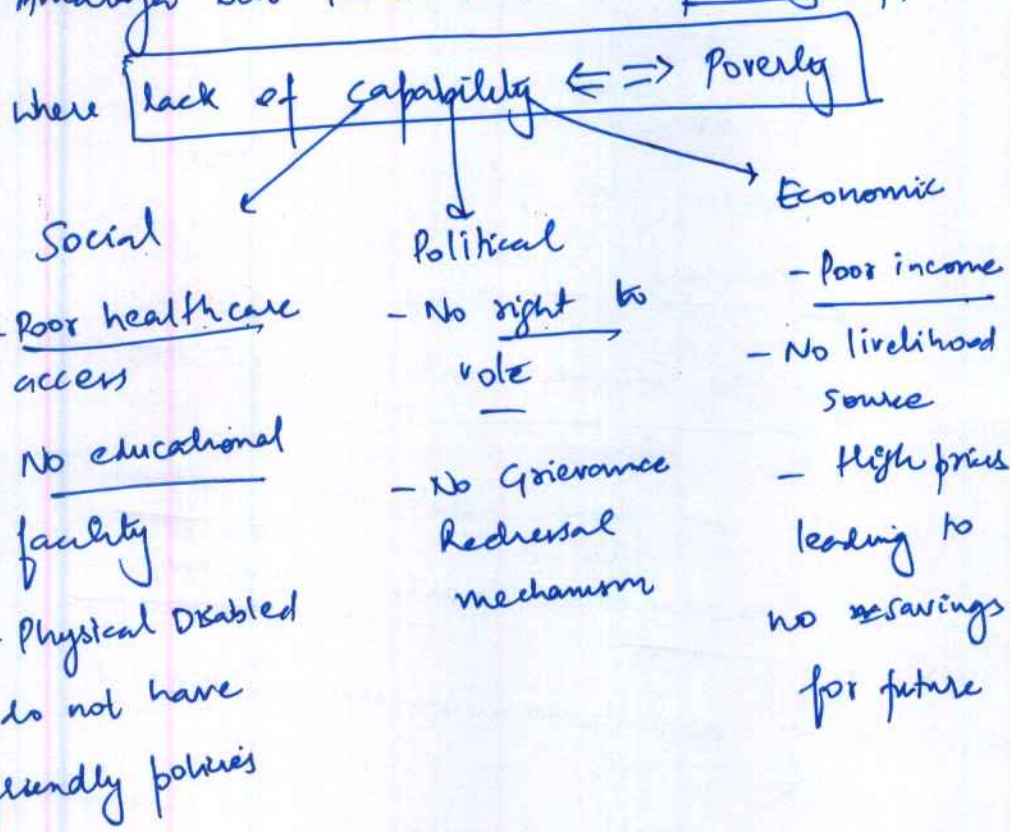 where lack of capability <=> Poverty
Social
- Poor healthcare
access
No educational
facility
- Physical Disabled
do not have
friendly policies
Political
- No right to
vote
- No Grievance
Redressal
mechanism
Economic
- Poor income
- No livelihood
source
- High prices
leading to
no savings
for future